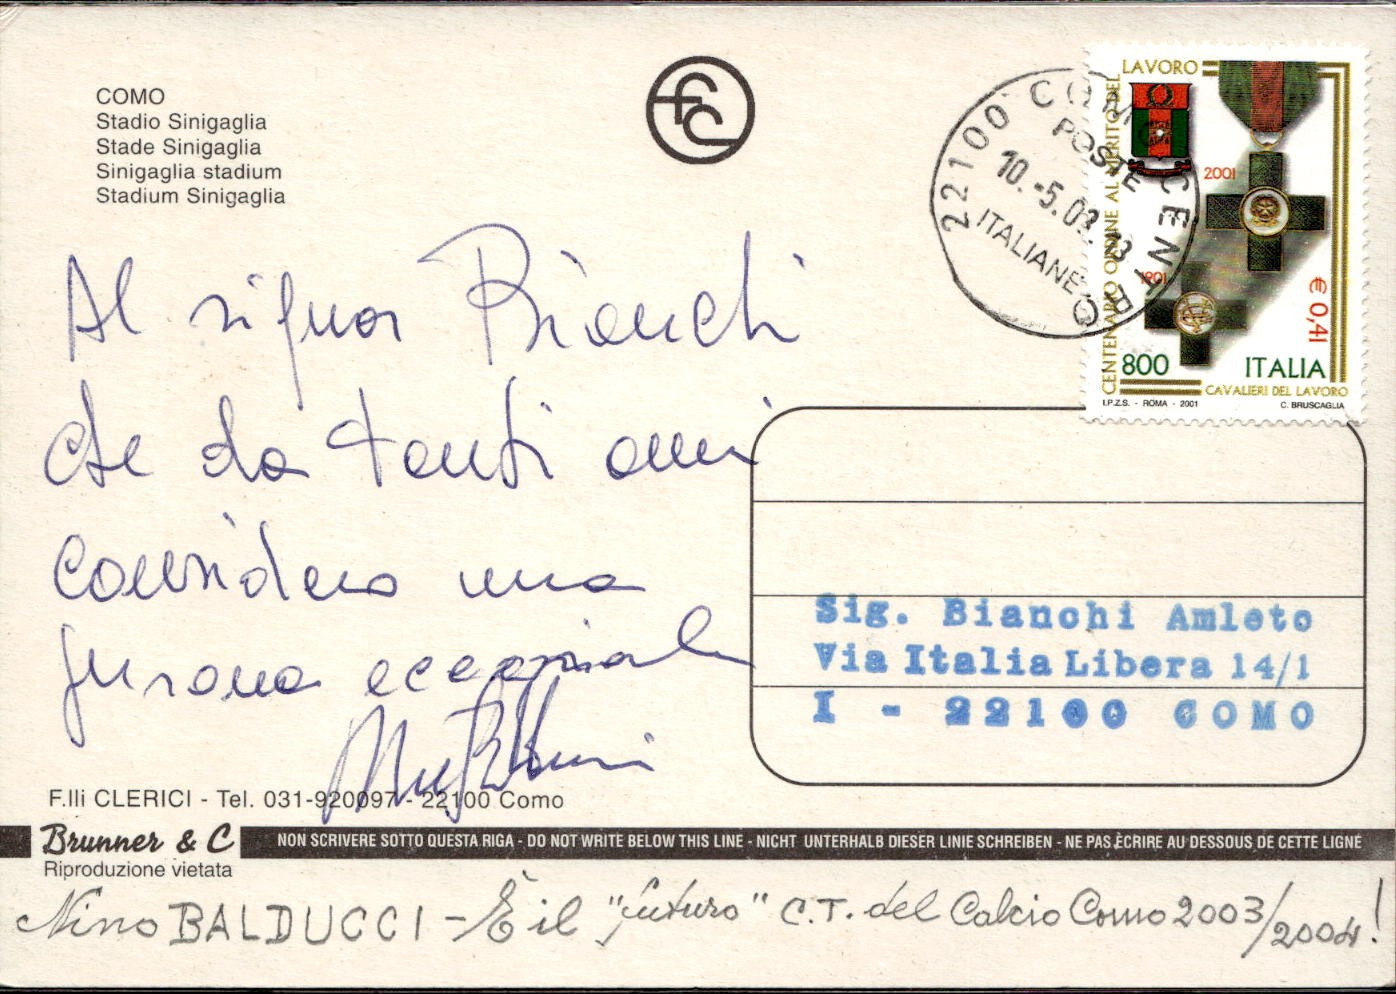 COMO
Stadio Sinigaglia
Stade Sinigaglia
Sinigaglia stadium
Stadium Sinigaglia
22100 COMO CENTRO
POSTE
10.-5.03. 13
ITALIANE
CENTENARIO ORDINE AL MERITO DEL LAVORO
2001
1901
€ 0,41
800 ITALIA
CAVALIERI DEL LAVORO
I.P.Z.S. - ROMA - 2001 C. BRUSCAGLIA
Al signor Bianchi
che da tanti anni
considero una
persona eccezionale
Sig. Bianchi Amleto
Via Italia Libera 14/1
I - 22100 COMO
F.lli CLERICI - Tel. 031-920097 - 22100 Como
Brunner & C
Riproduzione vietata
NON SCRIVERE SOTTO QUESTA RIGA - DO NOT WRITE BELOW THIS LINE - NICHT UNTERHALB DIESER LINIE SCHREIBEN - NE PAS ÈCRIRE AU DESSOUS DE CETTE LIGNE
Nino BALDUCCI - È il "futuro" C.T. del Calcio Como 2003/2004!